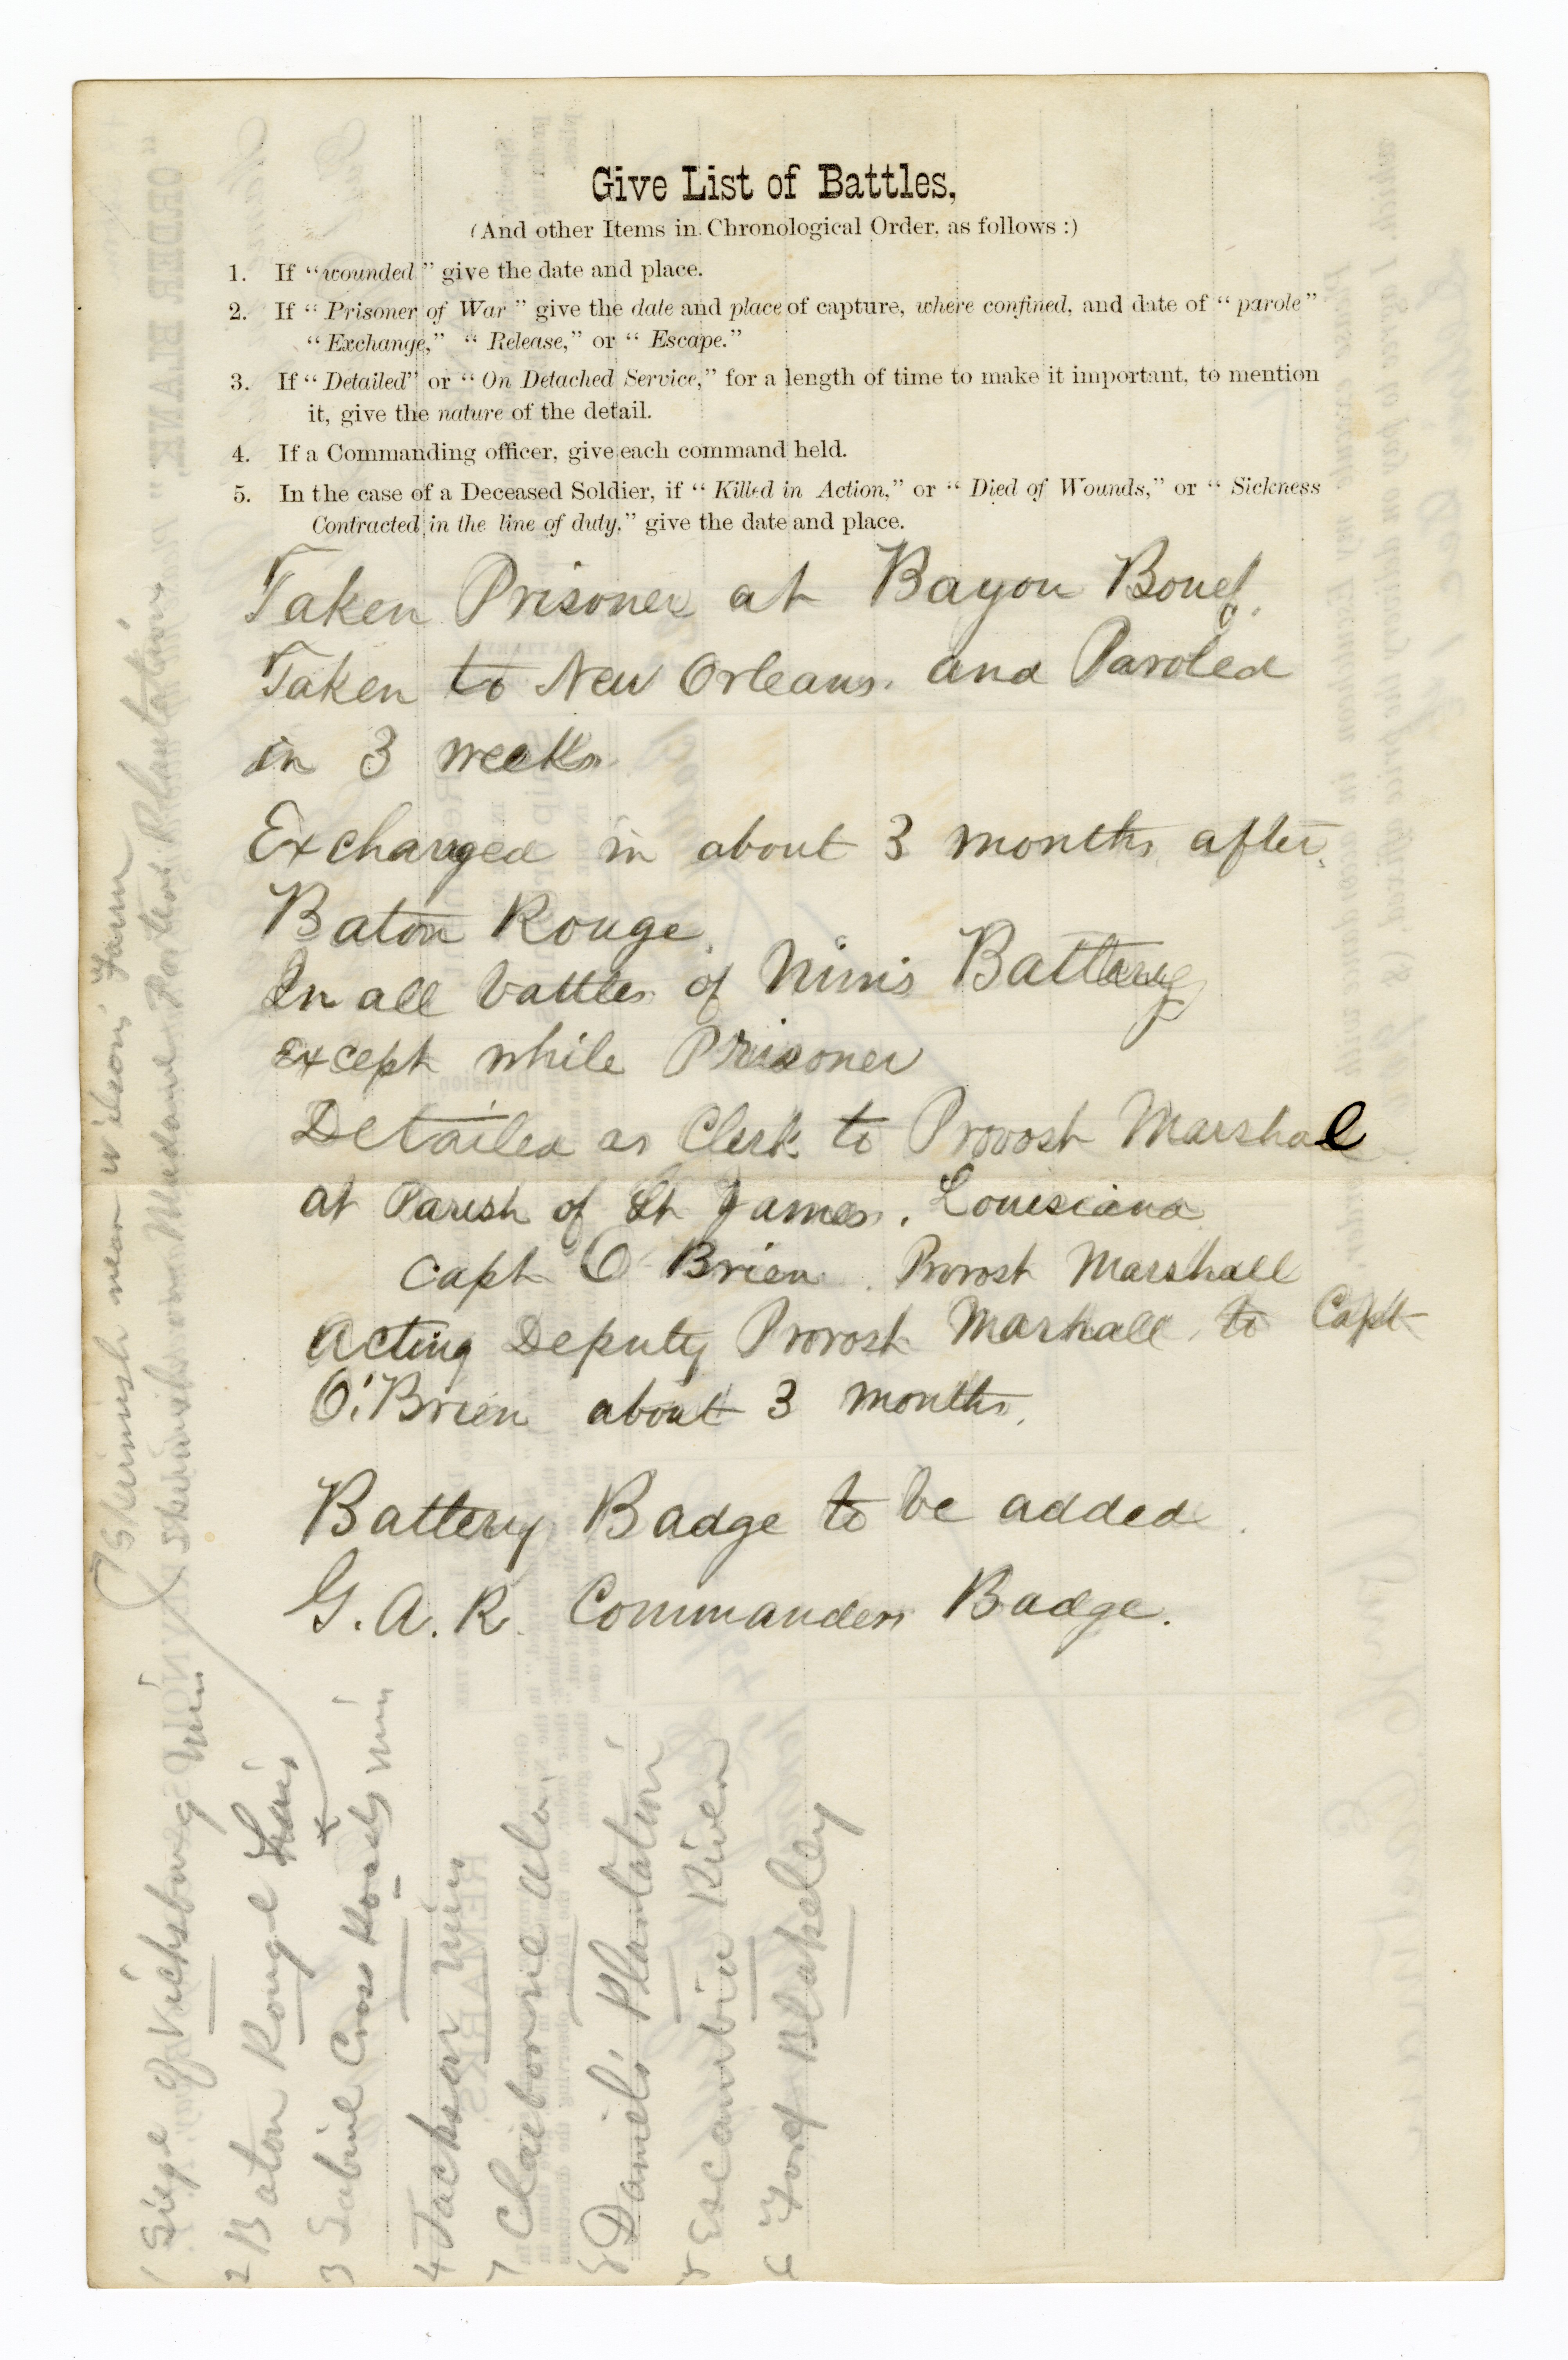 Give List of Battles,
(And other Items in Chronological Order, as follows :)
1. If "wounded" give the date and place.
2. If "Prisoner of War" give the date and place of capture, where confined, and date of "parole"
"Exchange," "Release," or "Escape."
3. If "Detailed" or "On Detached Service," for a length of time to make it important, to mention
it, give the nature of the detail.
4. If a Commanding officer, give each command held.
5. In the case of a Deceased Soldier, if "Killed in Action," or "Died of Wounds," or "Sickness
Contracted in the line of duty," give the date and place.
Taken Prisoner at Bayou
Taken to New Orleans. and Paroled
in 3 weeks.
Exchanged in about 3 months after.
Baton Rouge.
In all battles of Nims Battery
except while Prisoner
Detailed as Clerk to Provost Marshal
at Parish of St James, Louisiana
Capt O Brien. Provost Marshall
Acting Deputy Provost Marshall to Capt
O'Brien about 3 months.
Battery Badge to be added.
G. A. R. Commanders Badge.
Skirmish near Wilson's Farm
Skirmish on Madame Plantation
1 Siege of Vicksburg
2 Baton Rouge
3 Sabine Cross Roads
4 Jackson
7 Claiborne Ala
8 Daniels Plantation
Escambia River
6 Fort Blakeley